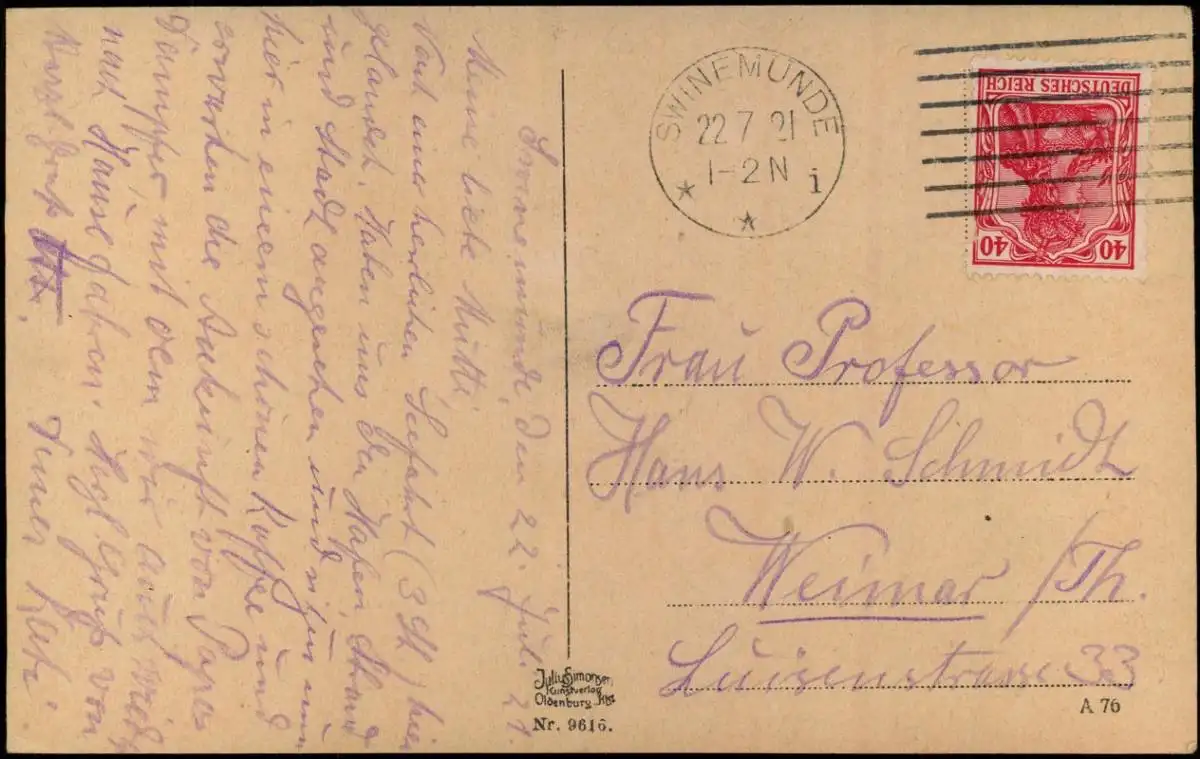 Swinemünde, den 22. Juli 21.
Meine liebe Mutti,
Nach einer herrlichen Seefahrt (3 St) hier
gelandet. Haben uns den Hafen, Strand
und Stadt angesehen und sitzen nun
hier in einem schönen Kaffee und
erwarten die Ankunft von Papas
Dampfer, mit dem wir auch wieder
nach Hause fahren. Hzgl. Gruß von
Deiner Käte.
Herzl. Gruß
SWINEMÜNDE
22 7 21
1-2 N
i
DEUTSCHES REICH
40 40
Frau Professor
Hans W. Schmidt
Weimar /Th.
Luisenstrasse 33
Julius Simonsen,
Kunstverlag
Oldenburg
Nr. 9616.
A 76